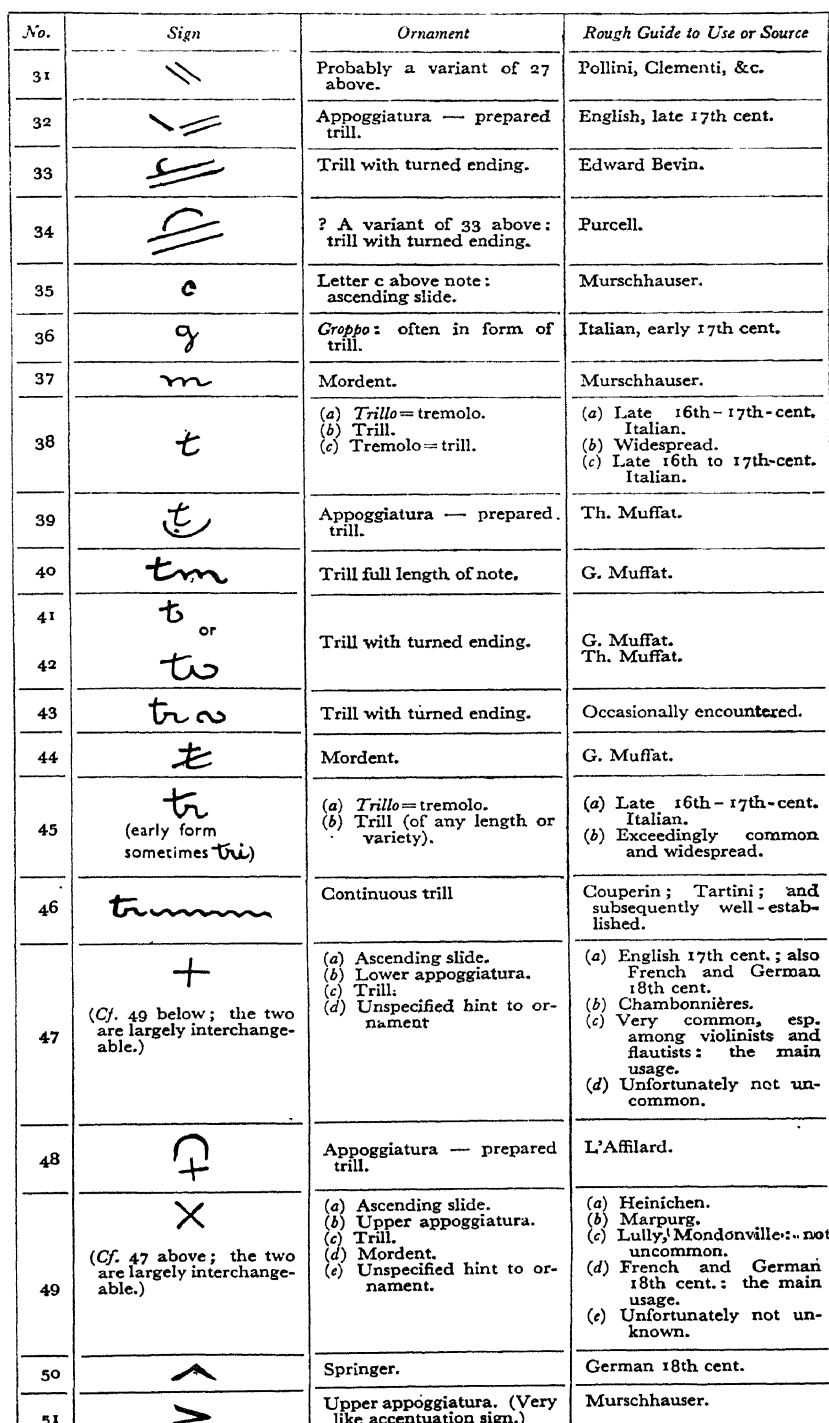 No. Sign Ornament Rough Guide to Use or Source
31 Probably a variant of 27 above. Pollini, Clementi, &c.
32 Appoggiatura — prepared trill. English, late 17th cent.
33 Trill with turned ending. Edward Bevin.
34 ? A variant of 33 above: trill with turned ending. Purcell.
35 c Letter c above note: ascending slide. Murschhauser.
36 g Groppo: often in form of trill. Italian, early 17th cent.
37 m Mordent. Murschhauser.
38 t
(a) Trillo=tremolo.
(b) Trill.
(c) Tremolo=trill.
(a) Late 16th-17th-cent. Italian.
(b) Widespread.
(c) Late 16th to 17th-cent. Italian.
39 t Appoggiatura — prepared trill. Th. Muffat.
40 tm Trill full length of note. G. Muffat.
41
or
42
Trill with turned ending.
G. Muffat.
Th. Muffat.
43 tr Trill with turned ending. Occasionally encountered.
44 t Mordent. G. Muffat.
45 tr
(early form
sometimes tri)
(a) Trillo=tremolo.
(b) Trill (of any length or variety).
(a) Late 16th-17th-cent. Italian.
(b) Exceedingly common and widespread.
46 tr Continuous trill Couperin; Tartini; and subsequently well-established.
47 +
(Cf. 49 below; the two
are largely interchange-
able.)
(a) Ascending slide.
(b) Lower appoggiatura.
(c) Trill.
(d) Unspecified hint to or-
nament
(a) English 17th cent.; also
French and German
18th cent.
(b) Chambonnières.
(c) Very common, esp.
among violinists and
flautists: the main
usage.
(d) Unfortunately not un-
common.
48 Appoggiatura — prepared trill. L'Affilard.
49 ×
(Cf. 47 above; the two
are largely interchange-
able.)
(a) Ascending slide.
(b) Upper appoggiatura.
(c) Trill.
(d) Mordent.
(e) Unspecified hint to or-
nament.
(a) Heinichen.
(b) Marpurg.
(c) Lully, Mondonville: not
uncommon.
(d) French and German
18th cent.: the main
usage.
(e) Unfortunately not un-
known.
50 Springer. German 18th cent.
51 Upper appoggiatura. (Very
like accentuation sign.)
Murschhauser.